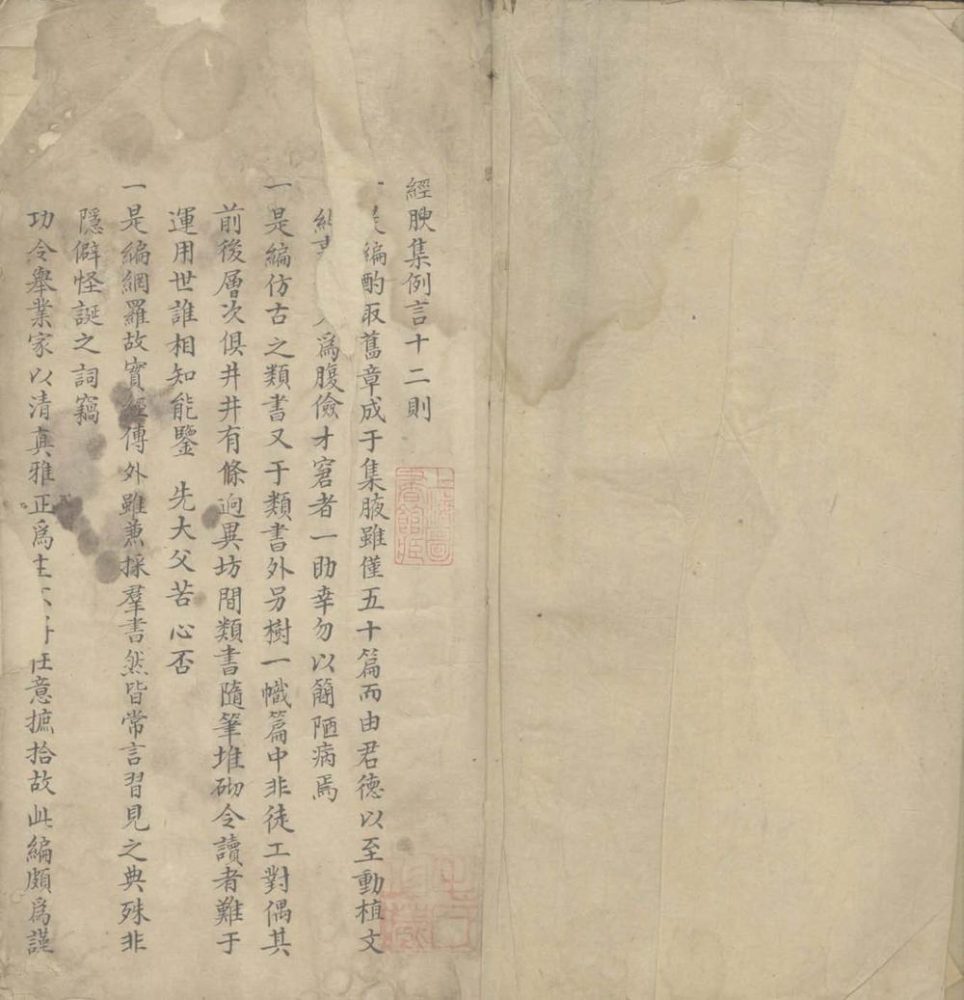 經腴集例言十二則
一是編酌取舊章成于集腋雖僅五十篇而由君德以至動植文
爲腹儉才窘者一助幸勿以簡陋病焉
一是編仿古之類書又于類書外另樹一幟篇中非徒工對偶其
前後層次俱井井有條迥異坊間類書隨筆堆砌令讀者難于
運用世誰相知能鑒 先大父苦心否
一是編網羅故實經傳外雖兼採羣書然皆常言習見之典殊非
隱僻怪誕之詞竊
功令舉業家以清真雅正爲主任意摭拾故此編頗爲謹
上海圖書館藏